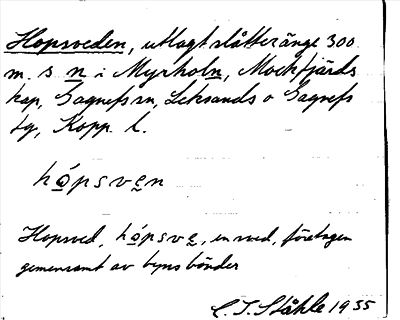 Hopsveden, utlagt slåtteränge 300
m. s. n i Myrholn, Mockfjärds
kap, Gagnefs sn, Leksands o Gagnefs
tg, Kopp. l.
hópsven
Hopsved, hópsve, en sved, företagen
gemensamt av byns bönder
C. I. Ståhle 1955